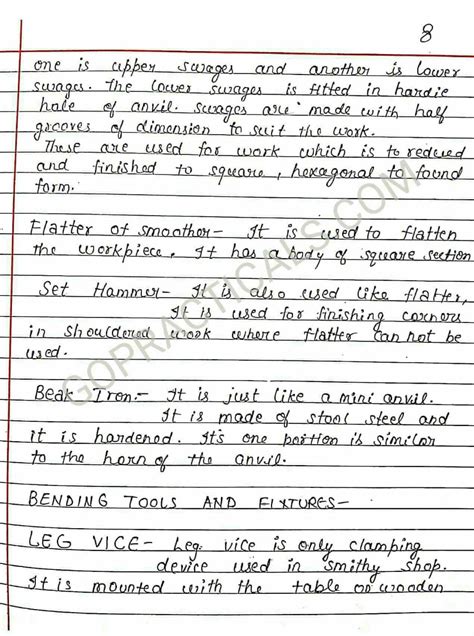 8
one is upper swages and another is lower
swages. The lower swages is fitted in hardie
hole of anvil. swages are made with half
grooves of dimension to suit the work.
These are used for work which is to reduced
and finished to square, hexagonal to found
form.
Flatter of smoother- It is used to flatten
the workpiece. It has a body of square section
Set Hammer- It is also used like flatter,
It is used for finishing corners
in shouldered work where flatter can not be
used.
Beak Iron:- It is just like a mini anvil.
It is made of stool steel and
it is hardenod. It's one portion is similar
to the horn of the anvil.
BENDING TOOLS AND FIXTURES-
LEG VICE- Leg vice is only clamping
device used in smithy shop.
It is mounted with the table or wooden
GOPRACTICALS.COM